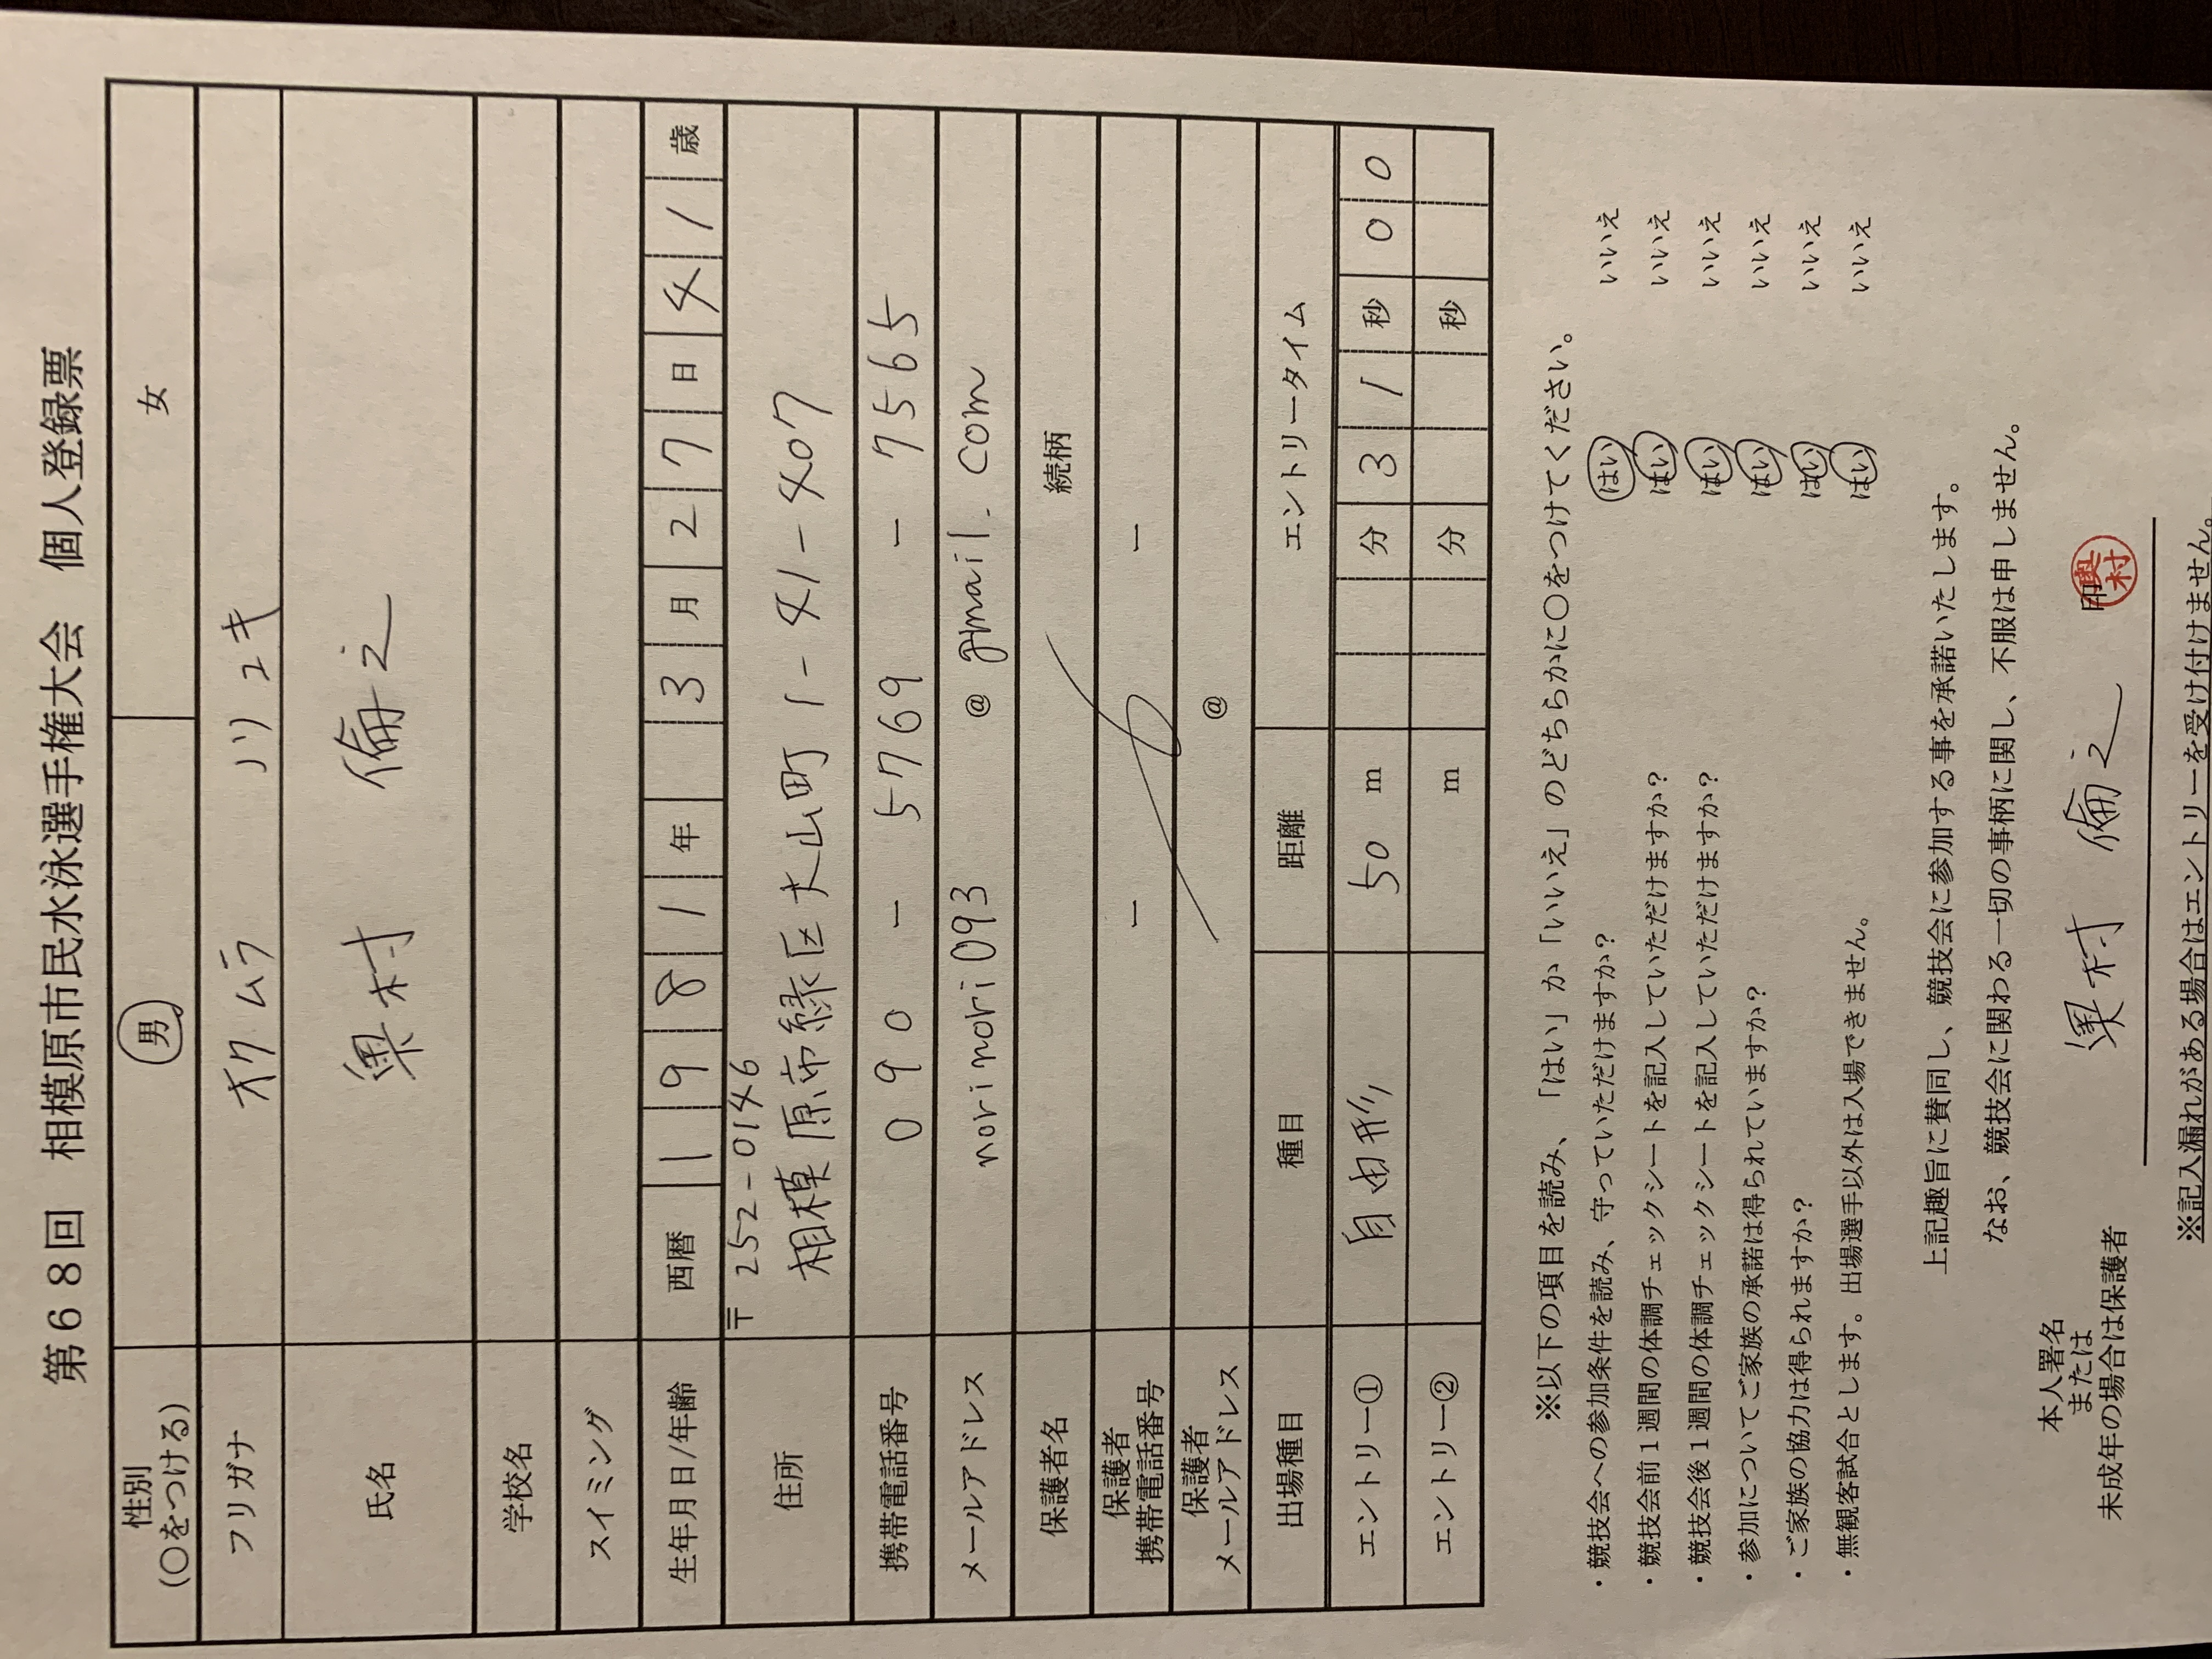 第６８回　相模原市民水泳選手権大会　個人登録票
性別
(○をつける)　男　女
フリガナ　オクムラ　ノリユキ
氏名　奥村　倫之
学校名
スイミング
生年月日/年齢　西暦　1981年　3月27日　41歳
住所　〒 252-0146
相模原市緑区大山町 1-41-407
携帯電話番号　090 - 5769 - 7565
メールアドレス　norinori093 @ gmail.com
保護者名　続柄
保護者
携帯電話番号　-　-
保護者
メールアドレス　@
出場種目　種目　距離　エントリータイム
エントリー①　自由形　50 m　分 31 秒 00
エントリー②　m　分　秒
※以下の項目を読み、「はい」か「いいえ」のどちらかに○をつけてください。
・競技会への参加条件を読み、守っていただけますか？　はい　いいえ
・競技会前１週間の体調チェックシートを記入していただけますか？　はい　いいえ
・競技会後１週間の体調チェックシートを記入していただけますか？　はい　いいえ
・参加についてご家族の承諾は得られていますか？　はい　いいえ
・ご家族の協力は得られますか？　はい　いいえ
・無観客試合とします。出場選手以外は入場できません。　はい　いいえ
上記趣旨に賛同し、競技会に参加する事を承諾いたします。
なお、競技会に関わる一切の事柄に関し、不服は申しません。
本人署名
または
未成年の場合は保護者　奥村　倫之　印　奥村
※記入漏れがある場合はエントリーを受け付けません。